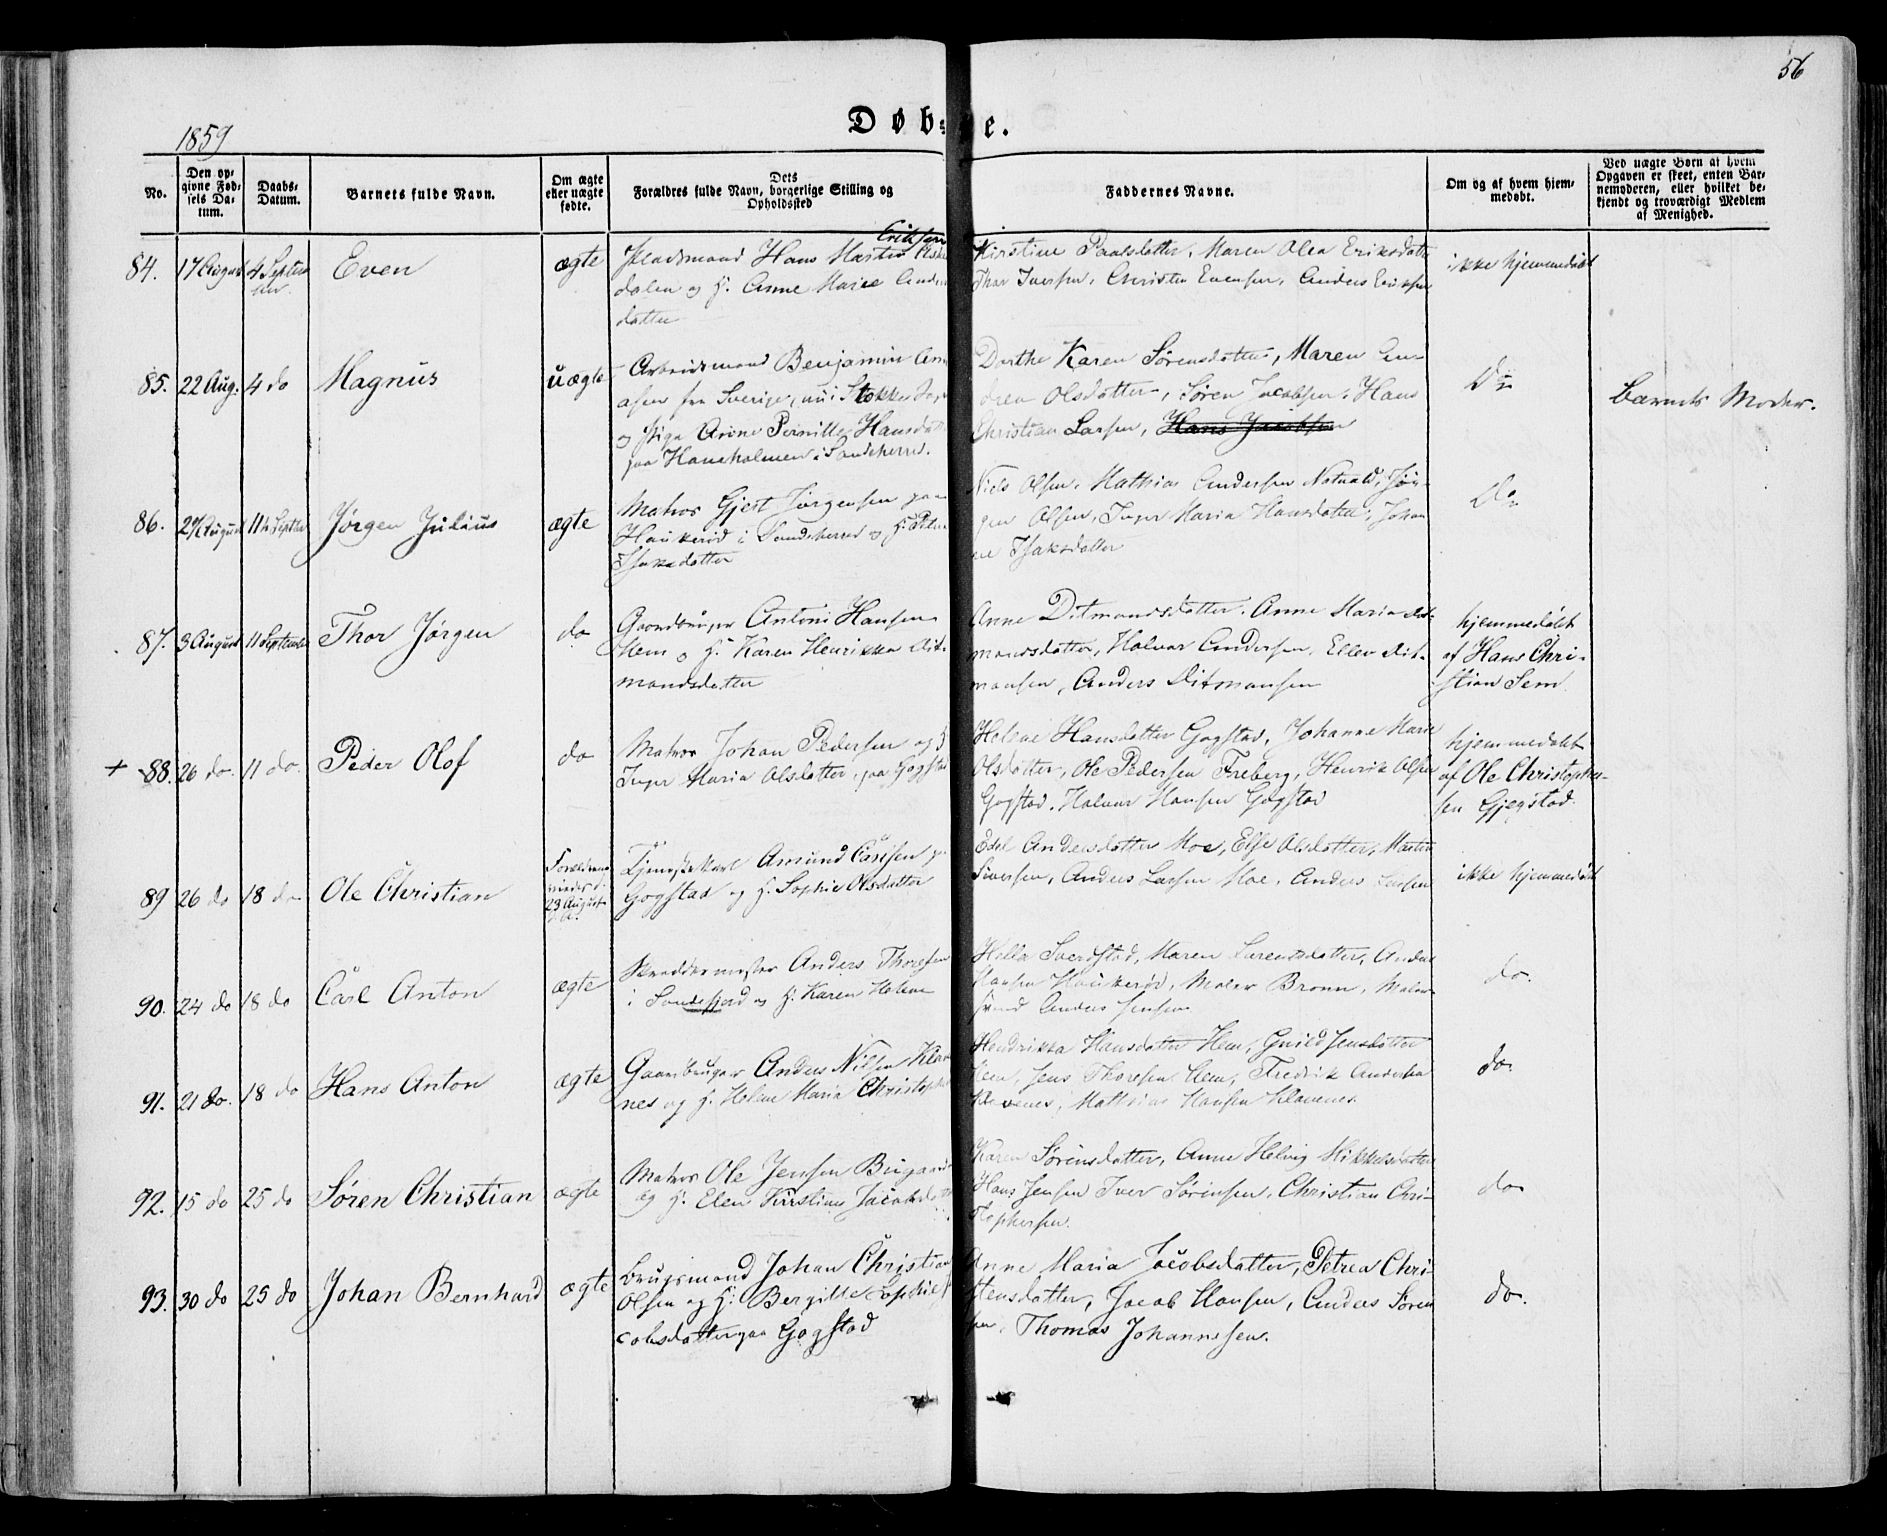 56
1859
Døb= e.
No.
Den op-
givne Fød-
sels Da-
tum.
Daabs-
Datum.
Barnets fulde Navn.
Om ægte
eller uægte
fødte.
Dets
Forældres fulde Navn, borgerlige Stilling og
Opholdssted
Faddernes Navne.
Om og af hvem hjem-
medøbt.
Ved uægte Børn af hvem
Opgaven er skeet, enten Bar-
nemoderen, eller hvilket be-
kjendt og troværdigt Medlem
af Menighed.
84. 17 August 4 Septem
ber.
Even
ægte
Eriksen
Pladsmand Hans Martin
dalen og H. Anne Marie
datter
Kirstine Paalsdatter, Maren Olea Eriksdatter
Thor Iversen, Christen Evensen, Anders Eriksen
ikke hjemmedøbt
85. 22 Aug. 4 do
Magnus
uægte
Arbeidsmand Benjamin
fra Sverige, nu i Stokke
og Pige Anne Pernille Hansda
paa Haneholmen i Sandeherred.
Dorthe Karen Sørensdatter, Maren An-
drea Olsdatter, Søren Jacobsen, Hans
Christian Larsen, Hans Jacobsen
Do
Barnets Moder.
86. 27 August 11te Septbr
Jørgen Julius
ægte
Matros Gjert Jørgensen paa
Haukerød i Sandeherred og H.
Isaksdatter
Niels Olsen, Mathias Andersen Natvald, Jør-
gen Olsen, Inger Maria Hansdatter, Johan
ne Isaksdatter
Do
87. 3 August 11 September
Thor Jørgen
do
Gaardbruger Anton Hansen
Hem og H. Karen Henrikka Dit-
mandsdatter
Anne Ditmandsdatter, Anne Maria Dit-
mandsdatter, Halvor Andersen, Ellev Dit-
mansen, Anders Ditmansen
hjemmedøbt
af Hans Chri-
stian Sem
+ 88. 26 do. 11 do.
Peder Olof
do
Matros Johan Pedersen og H
Inger Maria Olsdatter, paa Gogstad
Helene Hansdatter Gogstad, Johanne Marie
Olsdatter, Ole Pedersen Freberg, Henrik Olsen
Gogstad, Halvor Hansen Gogstad
hjemmedøbt
af Ole Christophe-
sen Gjegstad.
89 26 do 18 do
Ole Christian
Forældrene
viedes d.
23 August
d.A.
Tjenestekarl Amund Carlsen p
Gogstad og H. Sophie Olsdatter
Edel Andersdatter Moe, Else Olsdatter, Martin
Siversen, Anders Larsen Moe, Anders Larsen
ikke hjemmedøbt
90. 24 do 18 do
Carl Anton
ægte
Skreddermester Anders Thoresen
i Sandefjord og H. Karen Helene
Helle Sverdstad, Maren Lorentsdatter, Anders
Hansen Haukerød, Maler Bronn, Maler-
svend Anders Jensen
do.
91. 21 do. 18 do
Hans Anton
ægte
Gaardbruger Anders Nilsen Klave
nes og H. Helene Maria Christoph
Hendrikka Hansdatter Hem, Gunild Jensdatter
Hem, Jens Thoresen Hem, Fredrik Andersen
Klavenes, Mathias Hansen Klavenes.
do.
92. 15 do 25 do
Søren Christian
ægte
Matros Ole Jensen Bugaar
og H. Elen Kirstine Jacobsdatt
Karen Sørensdatter, Anne Helvig Mikkelsdatter
Hans Jensen, Iver Sørensen, Christian Chri-
stophersen.
do
93. 30 do 25 do
Johan Bernhard
ægte
Brugsmand Johan Christian
Olsen og H. Bergitte Sophie J
cobsdatter paa Gogstad
Anne Maria Jacobsdatter, Petrea Chri-
stensdatter, Jacob Hansen, Anders Søren
sen, Thomas Johannesen.
do.